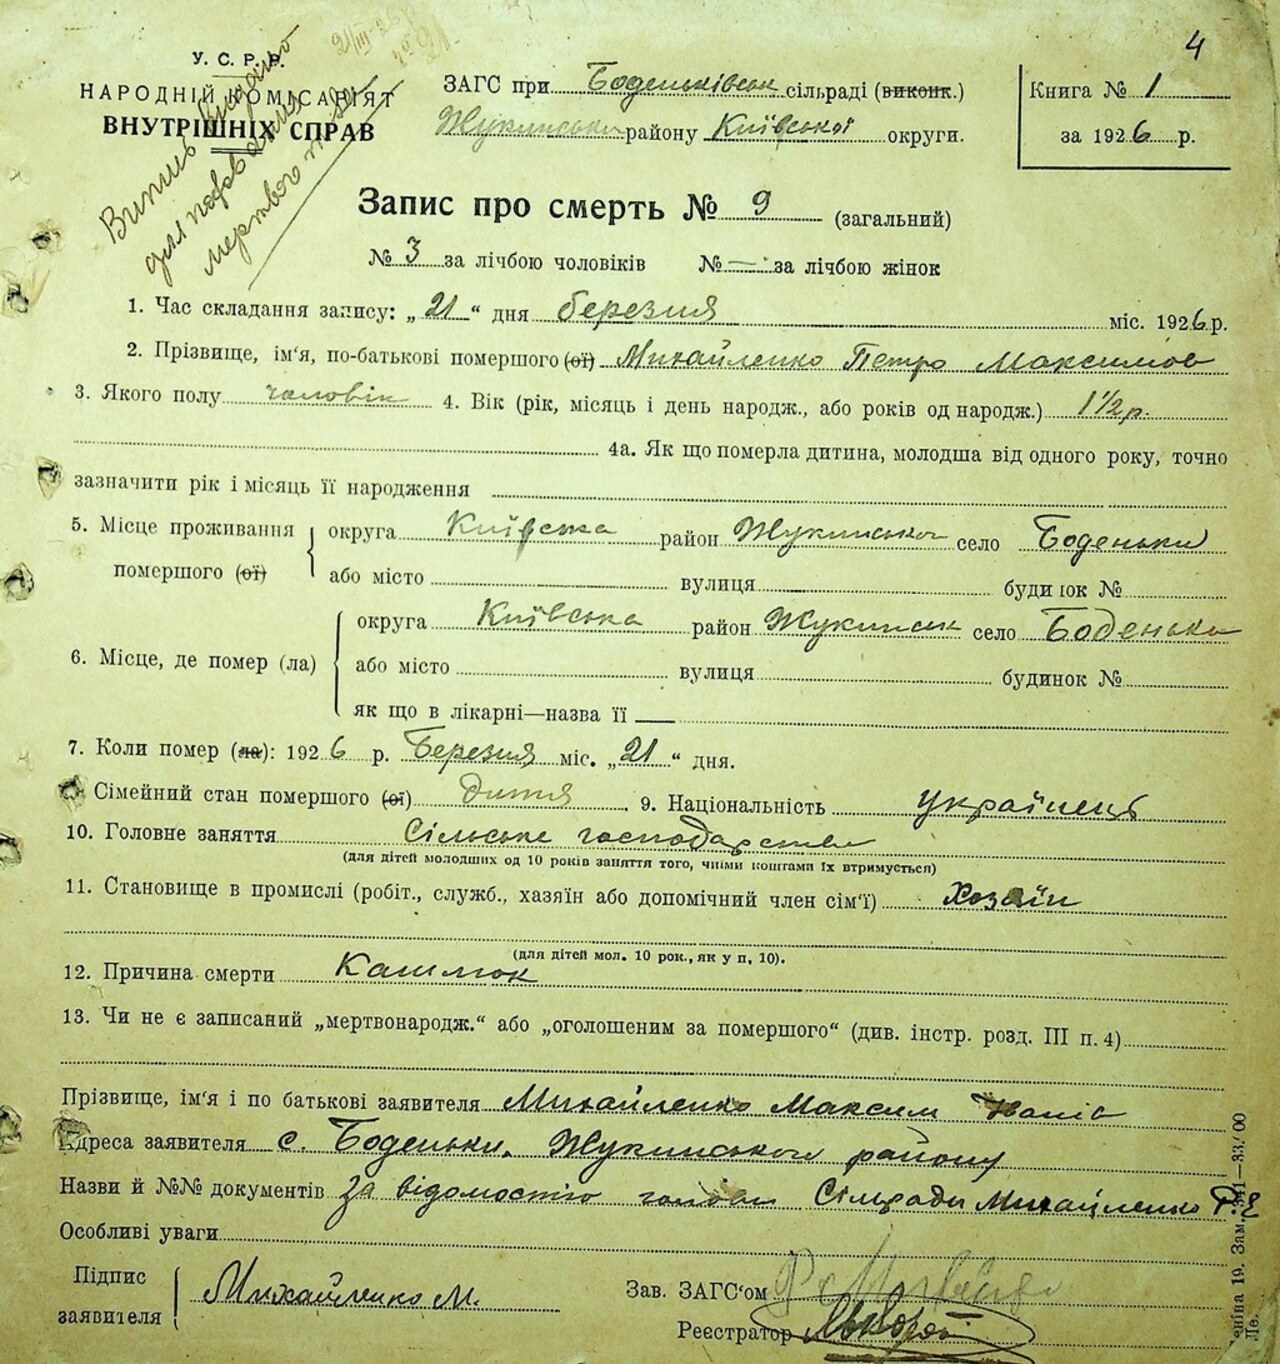 4
У. С. Р. Р.
НАРОДНІЙ КОМІСАРІЯТ
ВНУТРІШНІХ СПРАВ
Випись видано
для похован
мертвого
ЗАГС при Боденьківськ сільраді (виконк.)
Жукинського району Київської округи.
Книга № 1
за 1926 р.
Запис про смерть № 9 (загальний)
№ 3 за лічбою чоловіків № — за лічбою жінок
1. Час складання запису: „21“ дня березня міс. 1926 р.
2. Прізвище, ім'я, по-батькові помершого (ої) Михайленко Петро Максимов
3. Якого полу чоловік 4. Вік (рік, місяць і день народж., або років од народж.) 1 1/2 р.
4а. Як що померла дитина, молодша від одного року, точно
зазначити рік і місяць її народження
5. Місце проживання помершого (ої) округа Київська район Жукинського село Боденьки
або місто вулиця будинок №
6. Місце, де помер (ла) округа Київська район Жукинськ село Боденьки
або місто вулиця будинок №
як що в лікарні—назва її —
7. Коли помер (ла): 1926 р. Березня міс. „21“ дня.
Сімейний стан помершого (ої) дитя 9. Національність українець
10. Головне заняття Сільське господарство
(для дітей молодших од 10 років заняття того, чиїми коштами їх втримується)
11. Становище в промислі (робіт., служб., хазяїн або допомічний член сім'ї) Хозяїн
(для дітей мол. 10 рок., як у п. 10).
12. Причина смерти Кашлюк
13. Чи не є записаний „мертвонародж.“ або „оголошеним за помершого“ (див. інстр. розд. III п. 4)
Прізвище, ім'я і по батькові заявителя Михайленко Максим Іванів
Адреса заявителя с. Боденьки, Жукинського району
Назви й №№ документів За відомостю голови Сільради Михайленко Р. Є
Особливі уваги
Підпис заявителя Михайленко М.
Зав. ЗАГС'ом
Реєстратор